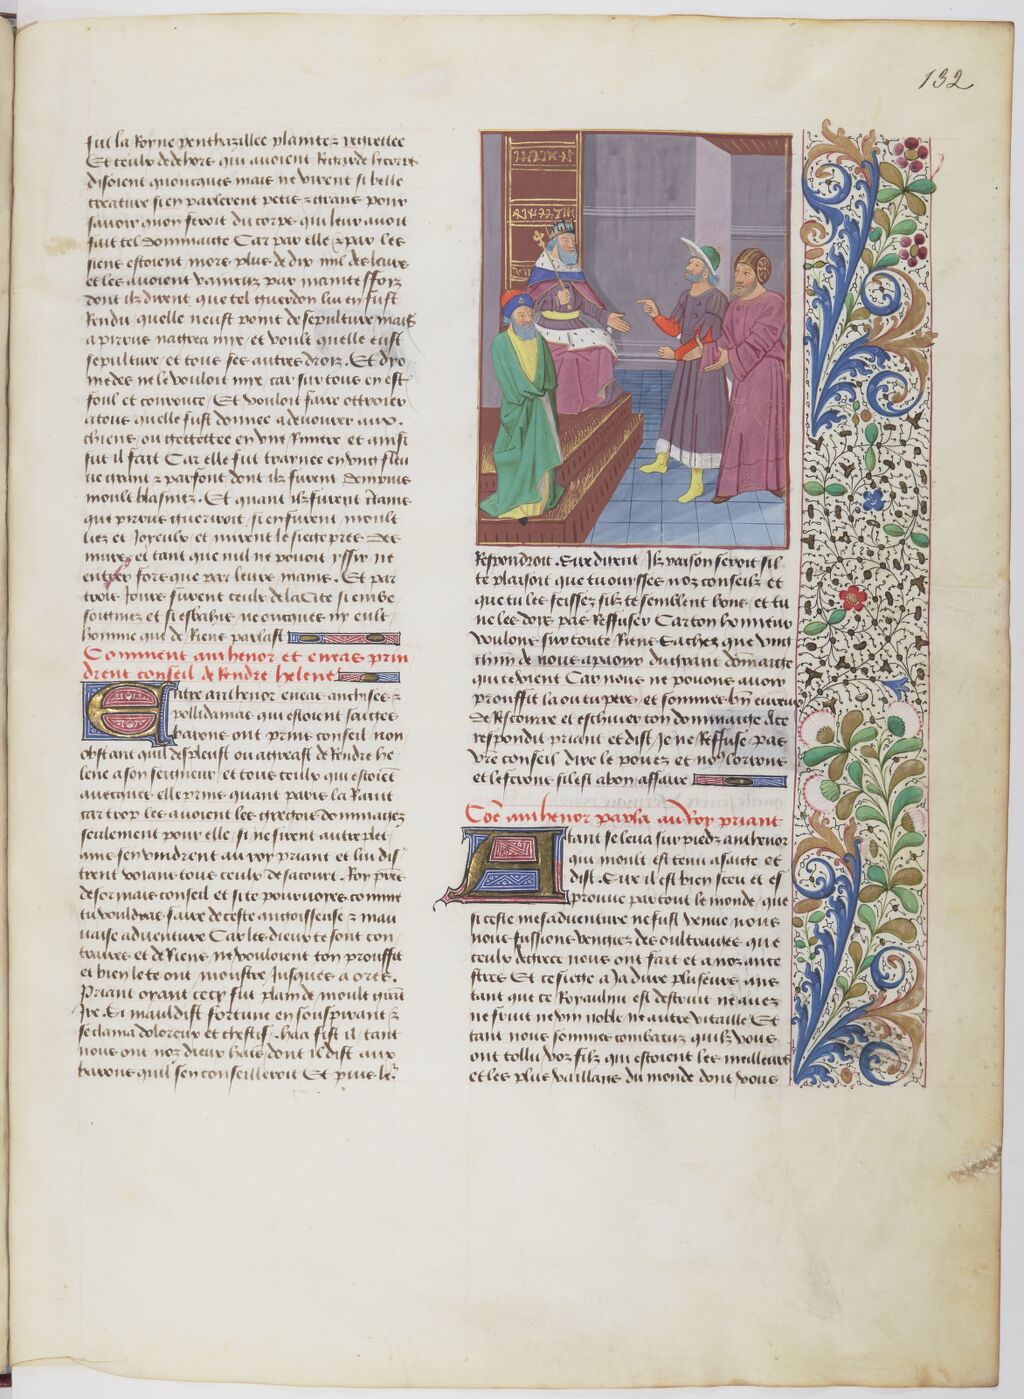 132
fut la Royne penthazillee plainte et regrettee
Et ceulx dedehors qui avoient Regarde le corps
disoient quoncques mais ne virent si belle
creature si en parlerent petis et grans pour
savoir quon feroit du corps qui leur avoit
fait tel dommaige Car par elle et par les
siens estoient mors plus de dix mil des leurs
et les avoient vaincuz par maintes fforz
dont ilz dirent que tel guerdon lui en fust
Rendu quelle neust point de sepulture mais
a pirrus nagrea mye et voult quelle eust
sepulture et tous ses autres droiz. Et dyo
medes ne le vouloit mye car sur tous en est
foul et couroucie Et vouloit faire ottroier
a tous quelle fust donnee a devourer aux
chiens ou gettee en une Riviere et ainsi
fut il fait Car elle fut traynee en ung fleu
ve grant et parfont dont ilz furent dempuis
moult blasmez. Et quant ilz furent
que pirrus gueriroit si en furent moult
liez et Joyeulx et mirent le siege pres des
murs et tant que nul ne povoit yssir ne
entrer fors que par leurs mains. Et par
trois Jours furent ceulx de la Cite si
et si esbahis ne oncques ny eult
homme qui de Riens parlast
Comment anthenor et eneas prin
drent conseil de Rendre helene
Entre anthenor eneas anchises et
pollidamas qui estoient saiges
barons ont prins conseil non
obstant quil despleust ou agreast de Rendre he
lene a son seigneur et tous ceulx qui estoient
avecques elle prins quant paris la Ravit
car trop les avoient les gregois dommagez
seulement pour elle si ne firent autre plet
ains sen vindrent au roy priant et lui dis
trent voians tous ceulx de sa court. Roy pres
desormais conseil et si te pourvoyes comme
tu vouldras faire de ceste angoisseuse et mau
vaise adventure Car les dieux te sont con
traires et de Riens ne vouloient ton prouffit
et bien le te ont monstre Jusques a ores.
Priant oyant cecy fut plain de moult grant
Jre. Si mauldist fortune en souspirant et
se clama doloreux et chestif. haa fist il tant
nous ont noz dieux hais dont il dist aux
barons quil sen conseilleroit Et puis leur
Respondroit. Sire dirent Ilz raison seroit sil
te plaisoit que tu ouisses noz conseilz et
que tu les feisses silz te semblent bons et tu
ne les dois pas Reffuser Car ton honneur
voulons sur toute Riens Sachez que ung
chacun de nous a paour du grant dommaige
qui te vient Car nous ne povons avoir
prouffit la ou tu pers et sommes bien curieux
de Rescourre et eschiver ton dommaige. Ace
respondit priant et dist Je ne Reffuse pas
vre conseil dire le povez et nous lorrons
et le ferons sil est a bon affaire
Coment anthenor parla au Roy priant
Atant se leva sur piedz anthenor
qui moult est tenu a saige et
dist. Sire il est bien sceu et es
prouve par tout le monde que
si ceste mesadventure ne fust venue nous
nous fussions vengiez des oultraiges que
ceulx de grece nous ont fait et a noz ance
stres Et ce siege a Ja dure plusieurs ans
tant que ce Royaulme est destruit ne avez
ne fruit ne vin noble ne autre vitaille Et
tant nous sommes combatuz quilz vous
ont tollu voz filz qui estoient les meilleurs
et les plus vaillans du monde dont vous